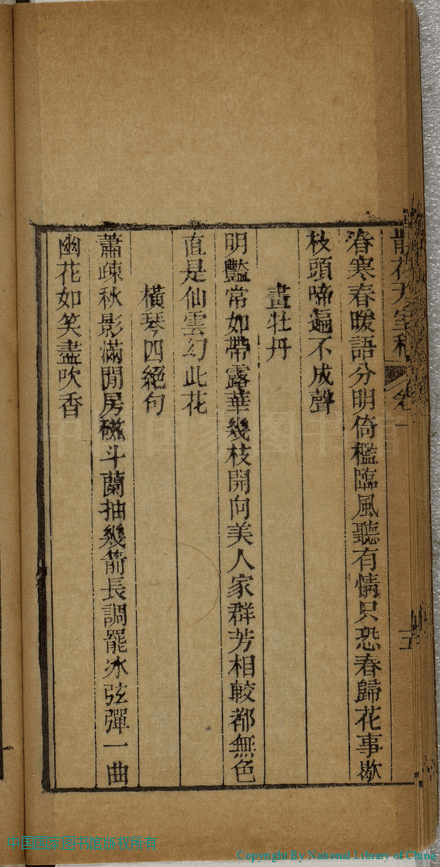 散花天室稿 卷一 五
春寒春暖語分明倚檻臨風聽有情只恐春歸花事歇
枝頭啼遍不成聲
畫牡丹
明豔常如帶露華幾枝開向美人家群芳相較都無色
直是仙雲幻此花
橫琴四絕句
蕭疎秋影滿閒房磁斗蘭抽幾箭長調罷冰弦彈一曲
幽花如笑盡吹香
中国国家图书馆版权所有
Copyright By National Library of China